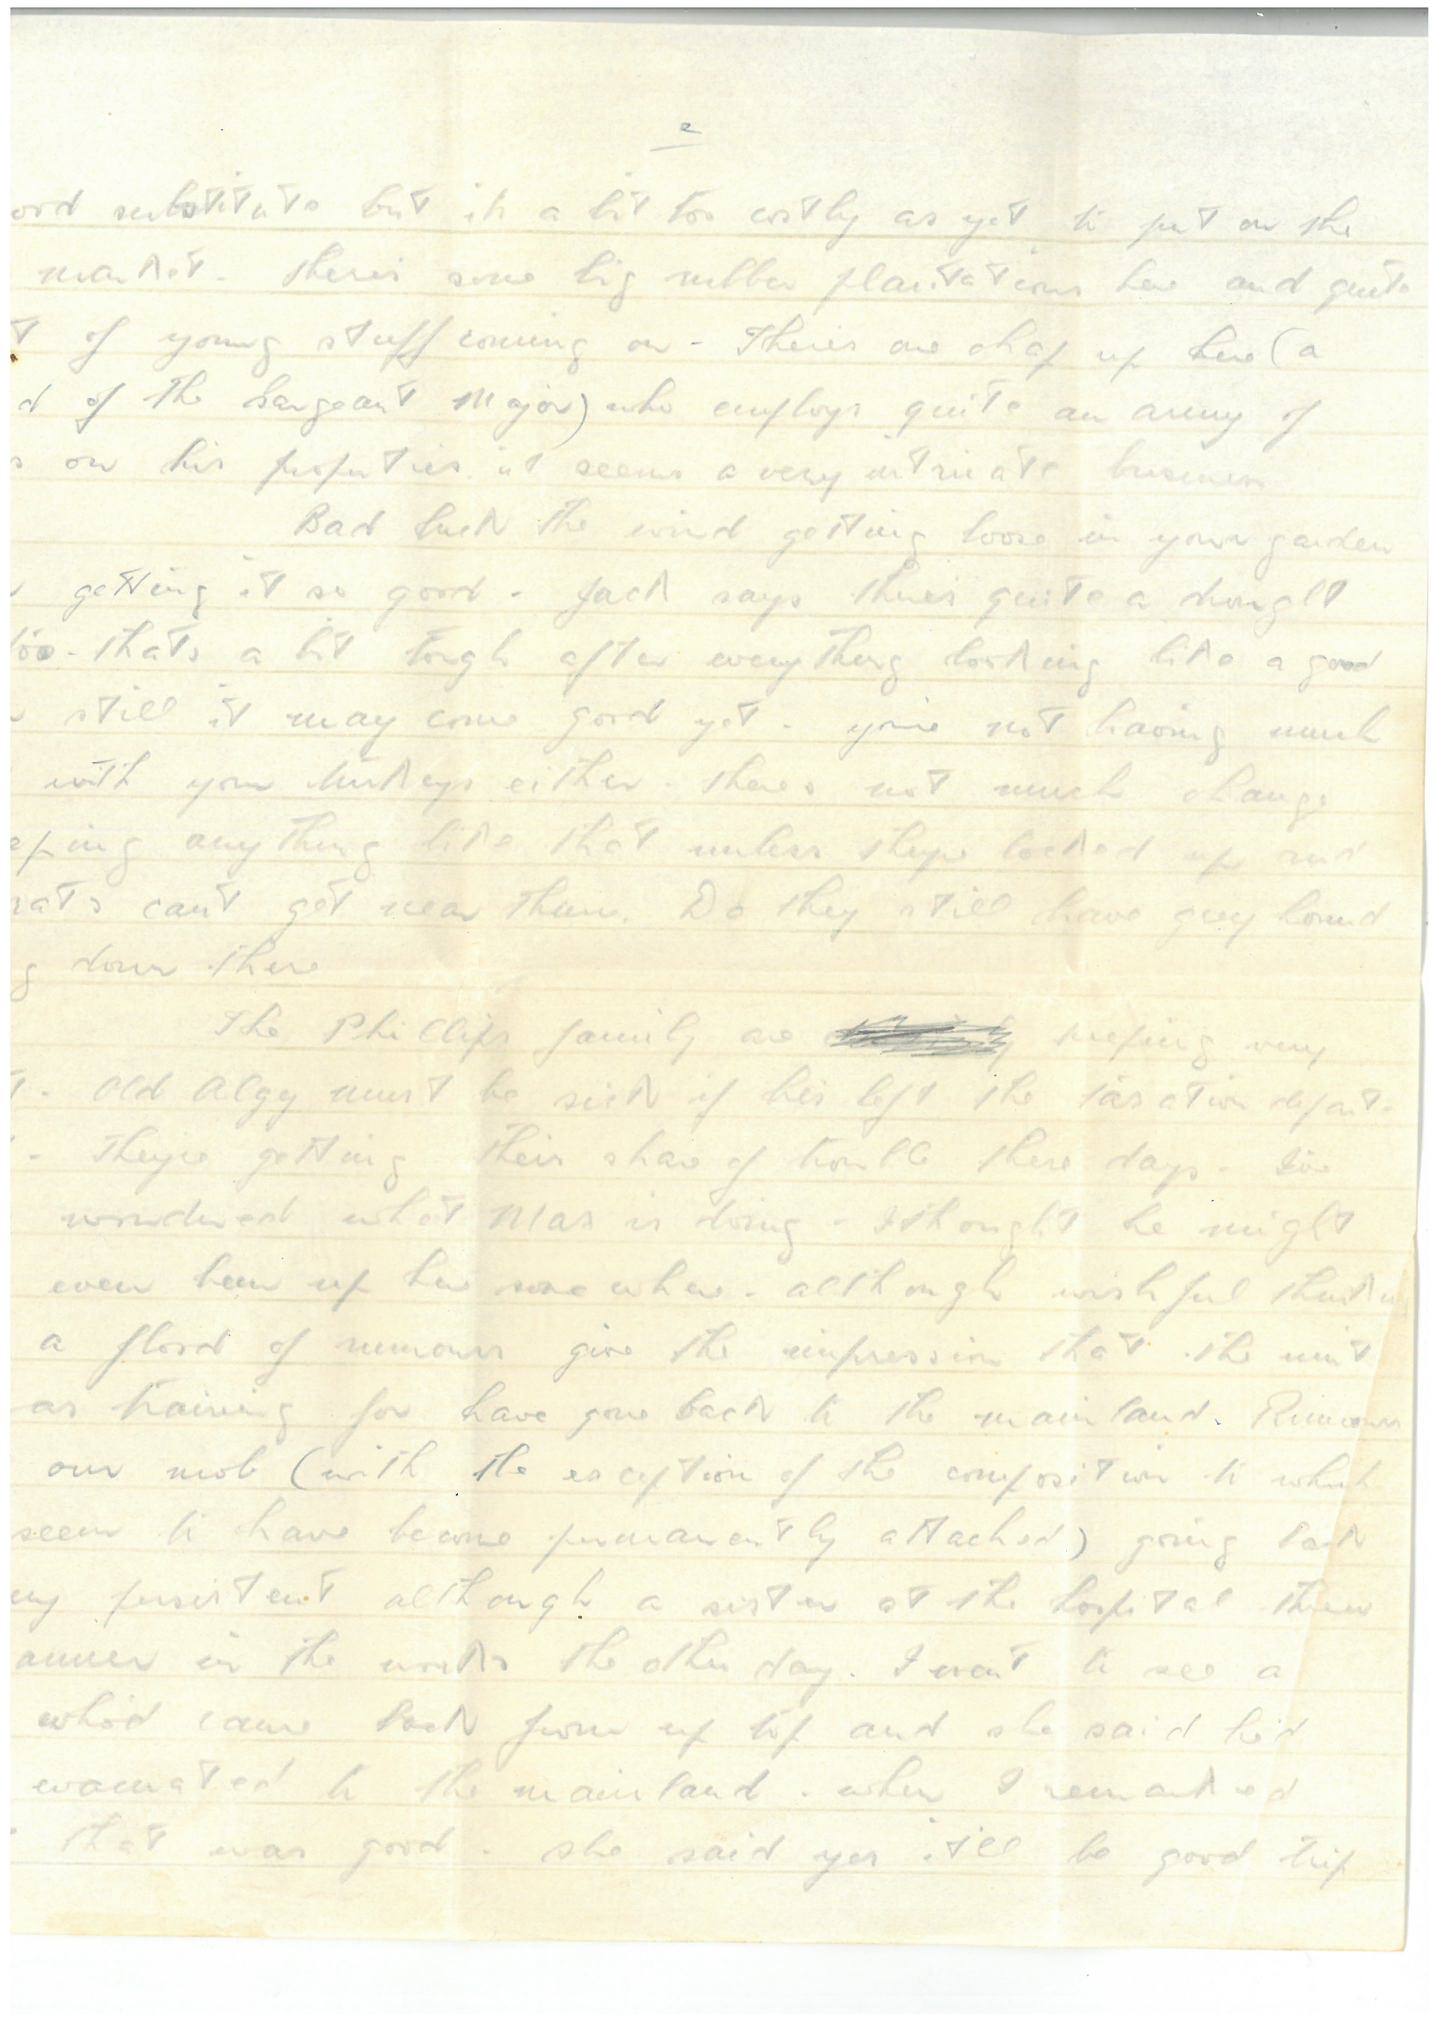 2
ord substitute but its a bit too costly as yet to put on the
market - theres some big rubber plantations here and quite
t of young stuff coming on - Theres one chap up here (a
d of the sargeant Major) who employs quite an army of
s on his properties. it seems a very intricate business
Bad luck the wind getting loose in your garden
getting it so good - Jack says theres quite a drought
too - thats a bit tough after everything looking like a good
still it may come good yet - youre not having much
with your turkeys either - theres not much change
eping anything like that unless theyre locked up and
rats cant get near them. Do they still have grey hound
g down there
The Phillips family are keeping very
t - Old Algy must be sick if hes left the taxation depart-
- Theyre getting their share of trouble these days - Ive
wondered what Max is doing - I thought he might
even been up here some where - although wishful think
a flood of rumours give the impression that the unit
as training for have gone back to the mainland. Rumours
our mob (with the exception of the composition to which
seem to have become permanently attached) going back
ery persistent although a sister at the hospital threw
anner in the works the other day. I went to see a
who'd came back from up top and she said he'd
evacuated to the mainland - when I remarked
that was good - she said yes it'll be good trip